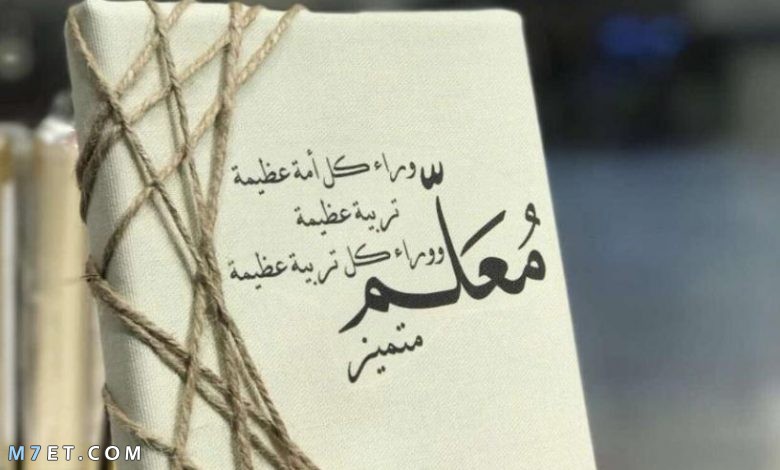 وراء كل أمة عظيمة
تربية عظيمة
ووراء كل تربية عظيمة
مُعَلّم
متميز
M7ET.COM